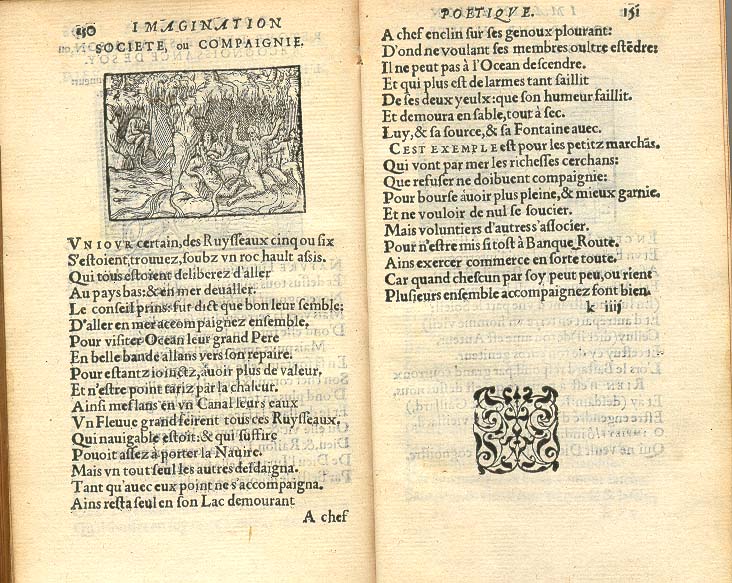 150 IMAGINATION
SOCIETE, ou COMPAGNIE.
VN IOVR certain, des Ruysseaux cinq ou six
S'estoient, trouuez, soubz vn roc hault assis.
Qui tous estoient deliberez d'aller
Au pays bas: & en mer deualler.
Le conseil prins: fut dict que bon leur semble:
D'aller en mer accompaignez ensemble,
Pour visiter Ocean leur grand Pere
En belle bande allans vers son repaire.
Pour estantz ioinctz, auoir plus de valeur,
Et n'estre point tariz par la chaleur.
Ainsi meslans en vn Canal leurs eaux
Vn Fleuue grand feirent tous ces Ruysseaux.
Qui nauigable estoit: & qui suffire
Pouoit assez à porter la Nauire.
Mais vn tout seul les autres desdaigna.
Tant qu'auec eux point ne s'accompaigna.
Ains resta seul en son Lac demourant
A chef
POETIQVE. 151
A chef enclin sur ses genoux plourant:
D'ond ne voulant ses membres oultre estēdre:
Il ne peut pas à l'Ocean descendre.
Et qui plus est de larmes tant saillit
De ses deux yeulx: que son humeur faillit.
Et demoura en sable, tout à sec.
Luy, & sa source, & sa Fontaine auec.
CEST EXEMPLE est pour les petitz marchās.
Qui vont par mer les richesses cerchans:
Que refuser ne doibuent compaignie:
Pour bourse auoir plus pleine, & mieux garnie.
Et ne vouloir de nul se soucier.
Mais voluntiers d'autres s'associer.
Pour n'estre mis si tost à Banque Route.
Ains exercer commerce en sorte toute.
Car quand chescun par soy peut peu, ou rient
Plusieurs ensemble accompaignez font bien.
k iiij